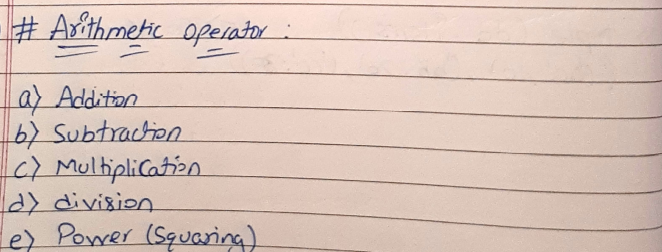 # Arithmetic operator :
a) Addition
b) Subtraction
c) Multiplication
d) division
e) Power (Squaring)